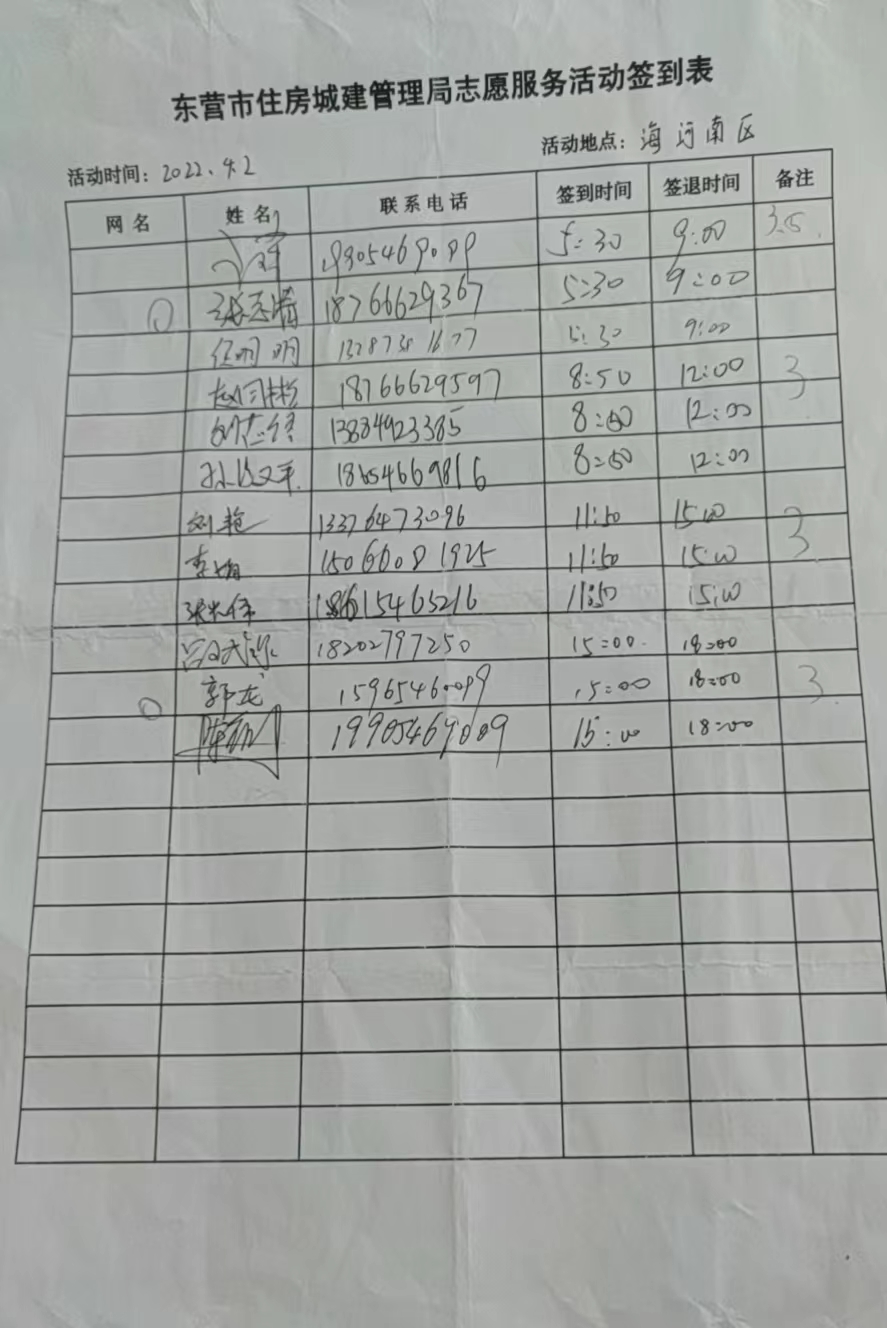 东营市住房城建管理局志愿服务活动签到表
活动时间：2022、4.2 活动地点：海河南区
网名 姓名 联系电话 签到时间 签退时间 备注
5:30 9:00 3.5
18766629367 5:30 9:00
任明明 5:30 9:00
18766629597 8:50 12:00 3
13884923385 8:50 12:00
18654669816 8:50 12:00
刘艳 13376473096 11:50 15:00
李娟 15066081925 11:50 15:00 3
18615465216 11:50 15:00
18202797250 15:00 18:00
郭龙 15965460099 15:00 18:00 3
19905469009 15:00 18:00